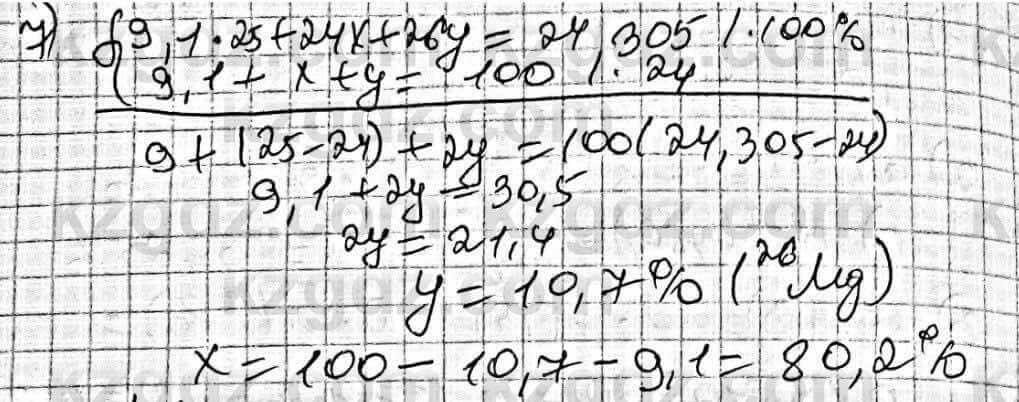 7) { 9,1·25+24x+26y = 24,305 /·100%
9,1 + x + y = 100 /·24
9+(25-24)+2y=100(24,305-24)
9,1+2y=30,5
2y=21,4
y=10,7% (²⁶Mg)
x=100-10,7-9,1=80,2%
kzgdz.com